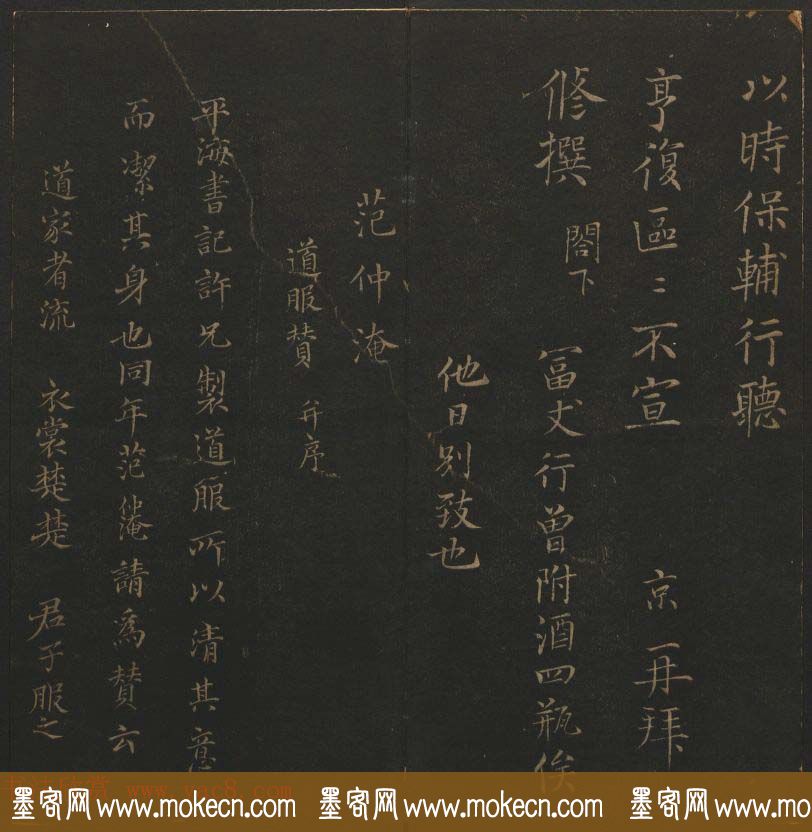 以時保輔行聽
亨復區〻不宣 京再拜
修撰 閤下 冨丈行曾附酒四瓶俟
他日别致也
范仲淹
道服赞 并序
平海書記許兄製道服所以清其意
而潔其身也同年范仲淹請爲赞云
道家者流 衣裳楚楚 君子服之
书法欣赏 www.yac8.com
墨客网 www.mokecn.com 墨客网 www.mokecn.com 墨客网 www.mo